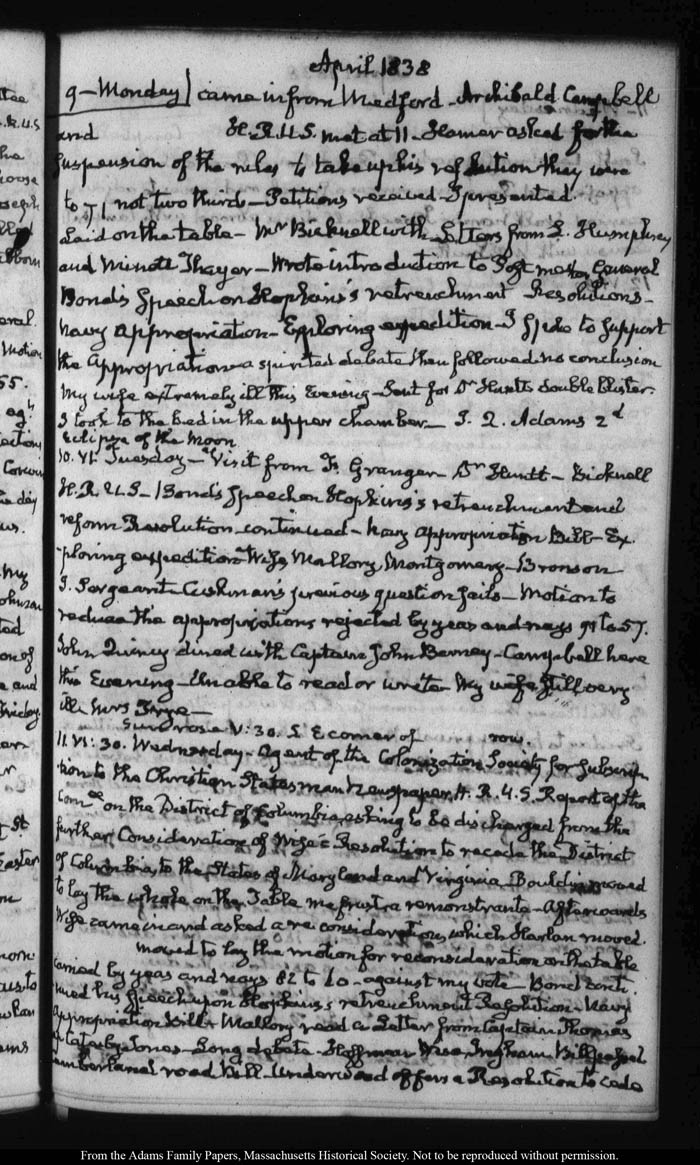 April 1838
9 - Monday | came in from Medford - Archibald Campbell
and H. R. U.S. met at 11 - Homer asked for the
Suspension of the rules to take up his resolution they were
to 71 not two thirds - Petitions received - I presented.
Laid on the table - Mr Bicknell with Letters from L. Humphrey
and Minott Thayer - Wrote introduction to Post master General
Bond's Speech on Hopkins's retrenchment Resolutions -
Navy Appropriation - Exploring expedition - I spoke to support
the Appropriation - a spirited debate then followed no conclusion
My wife extremely ill this Evening - Sent for Dr Huntt double blister.
I took to the bed in the upper chamber - J. Q. Adams 2d
Eclipse of the Moon
10. VI. Tuesday - Visit from F. Granger - Dr Huntt - Bicknell
H. R. U.S - Bond's Speech on Hopkins's retrenchment and
reform Resolution continued - Navy appropriation Bill - Ex-
ploring expedition Wise, Mallory, Montgomery - Bronson
J. Sergeant Cushman's previous question fails - Motion to
reduce the appropriations rejected by yeas and nays 91 to 57.
John Quincy dined with Captain John Barney - Campbell here
this Evening - Unable to read or write - My wife still very
ill - Mrs Frye -
Sun rose V: 30. S E corner of row.
11. VI: 30. Wednesday - Agent of the Colonization Society for Subscrip-
tion to the Christian Statesman Newspaper. H. R. U.S. Report of the
Comee on the District of Columbia, asking to be discharged from the
further Consideration of Wise's Resolution to recede the District
of Columbia to the States of Maryland and Virginia Bouldin moved
to lay the whole on the Table me frustra remonstrante - Afterwards
Wise came in and asked a reconsideration, which Harlan moved.
moved to lay the motion for reconsideration on the table
carried by yeas and nays 82 to 60 - against my vote - Bond conti-
nued his Speech upon Hopkins's retrenchment Resolution - Navy
Appropriation Bill - Mallory read a Letter from Captain Thomas
Ap Catesby Jones - Long debate - Hoffman Wise Ingham Bill passed
Cumberland road Bill - Underwood offers a Resolution to cede
From the Adams Family Papers, Massachusetts Historical Society. Not to be reproduced without permission.